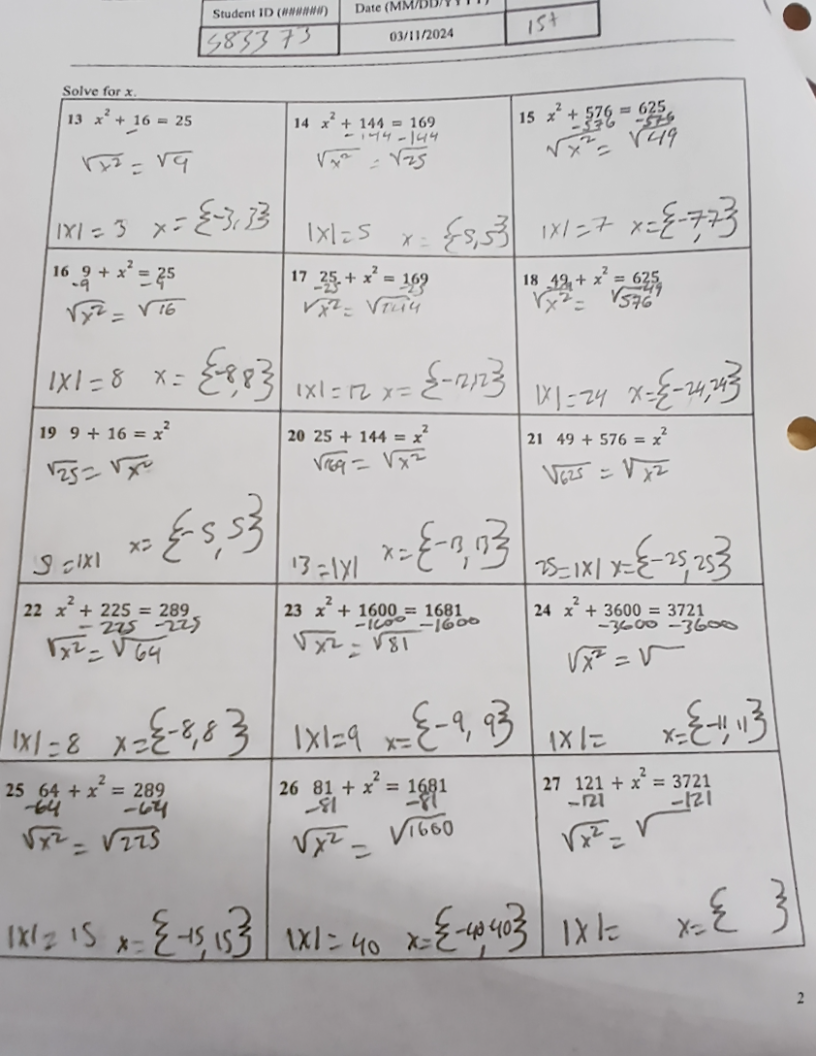 Student ID (######)
Date (MM/DD/YYYY)
583373
03/11/2024
1st
Solve for x.
13 x² + 16 = 25
√x² = √9
|x| = 3 x = {-3, 3}
14 x² + 144 = 169
-144 -144
√x² = √25
|x| = 5 x = {5, 5}
15 x² + 576 = 625
-576 -576
√x² = √49
|x| = 7 x = {-7, 7}
16 9 + x² = 25
-9 -9
√x² = √16
|x| = 8 x = {-8, 8}
17 25 + x² = 169
-25 -25
√x² = √144
|x| = 12 x = {-12, 12}
18 49 + x² = 625
-49 -49
√x² = √576
|x| = 24 x = {-24, 24}
19 9 + 16 = x²
√25 = √x²
5 = |x| x = {-5, 5}
20 25 + 144 = x²
√169 = √x²
13 = |x| x = {-13, 13}
21 49 + 576 = x²
√625 = √x²
25 = |x| x = {-25, 25}
22 x² + 225 = 289
-225 -225
√x² = √64
|x| = 8 x = {-8, 8}
23 x² + 1600 = 1681
-1600 -1600
√x² = √81
|x| = 9 x = {-9, 9}
24 x² + 3600 = 3721
-3600 -3600
√x² = √
|x| = x = {-11, 11}
25 64 + x² = 289
-64 -64
√x² = √225
|x| = 15 x = {-15, 15}
26 81 + x² = 1681
-81 -81
√x² = √1660
|x| = 40 x = {-40, 40}
27 121 + x² = 3721
-121 -121
√x² = √
|x| = x = { }
2